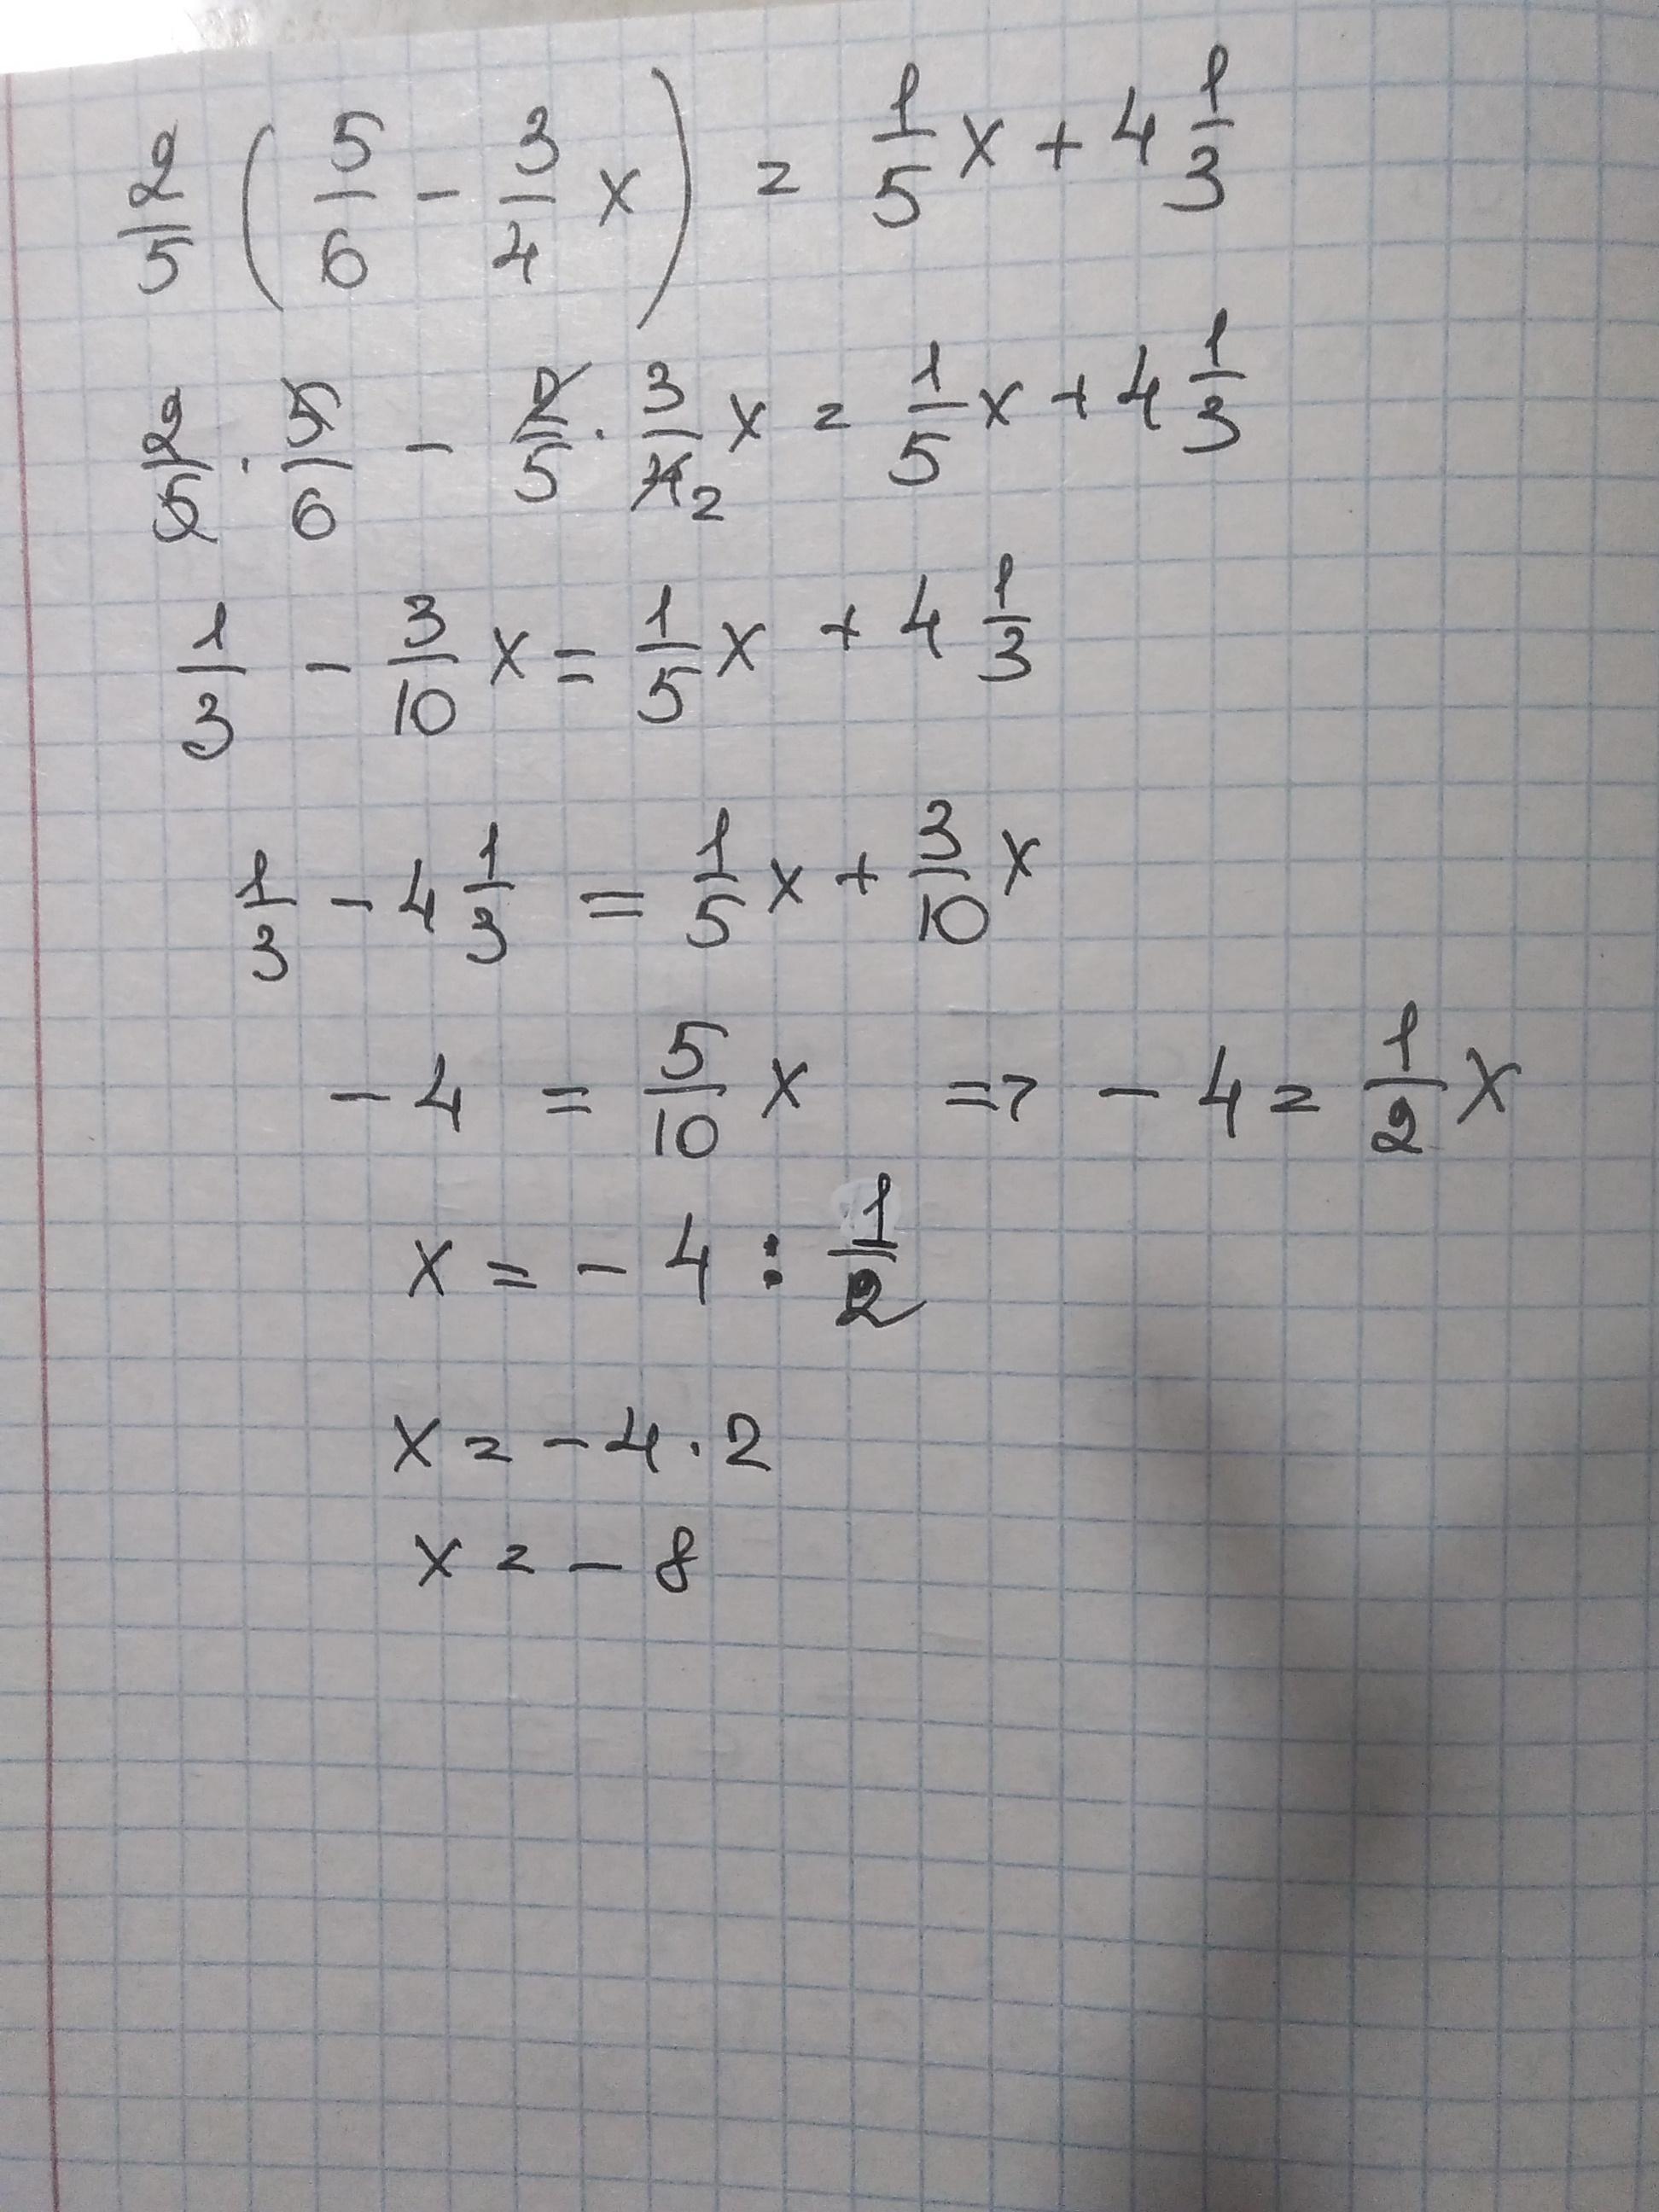 2/5 (5/6 - 3/4 x) = 1/5 x + 4 1/3
2/5 · 5/6 - 2/5 · 3/4 2 x = 1/5 x + 4 1/3
1/3 - 3/10 x = 1/5 x + 4 1/3
1/3 - 4 1/3 = 1/5 x + 3/10 x
- 4 = 5/10 x => - 4 = 1/2 x
x = - 4 : 1/2
x = - 4 · 2
x = - 8